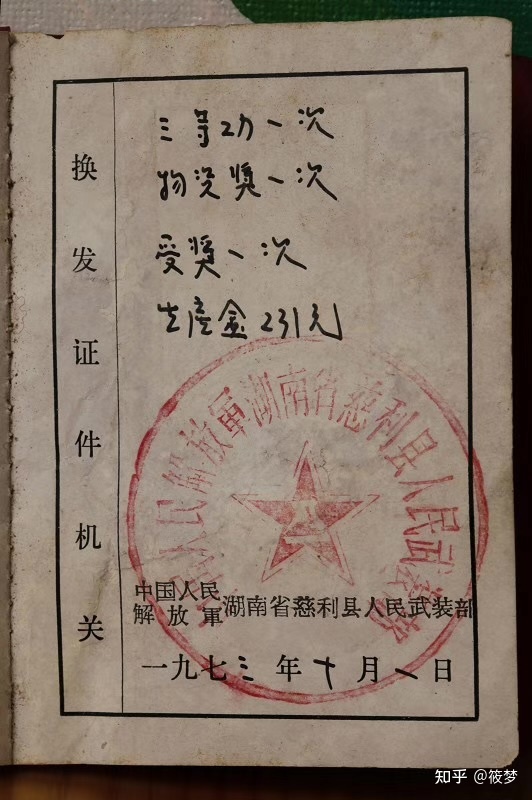 换发证件机关
三等功一次
物资奖一次
受奖一次
生产金231元
中国人民解放軍湖南省慈利县人民武装部
中国人民
解放軍湖南省慈利县人民武装部
一九七三年十月一日
知乎 @筱梦